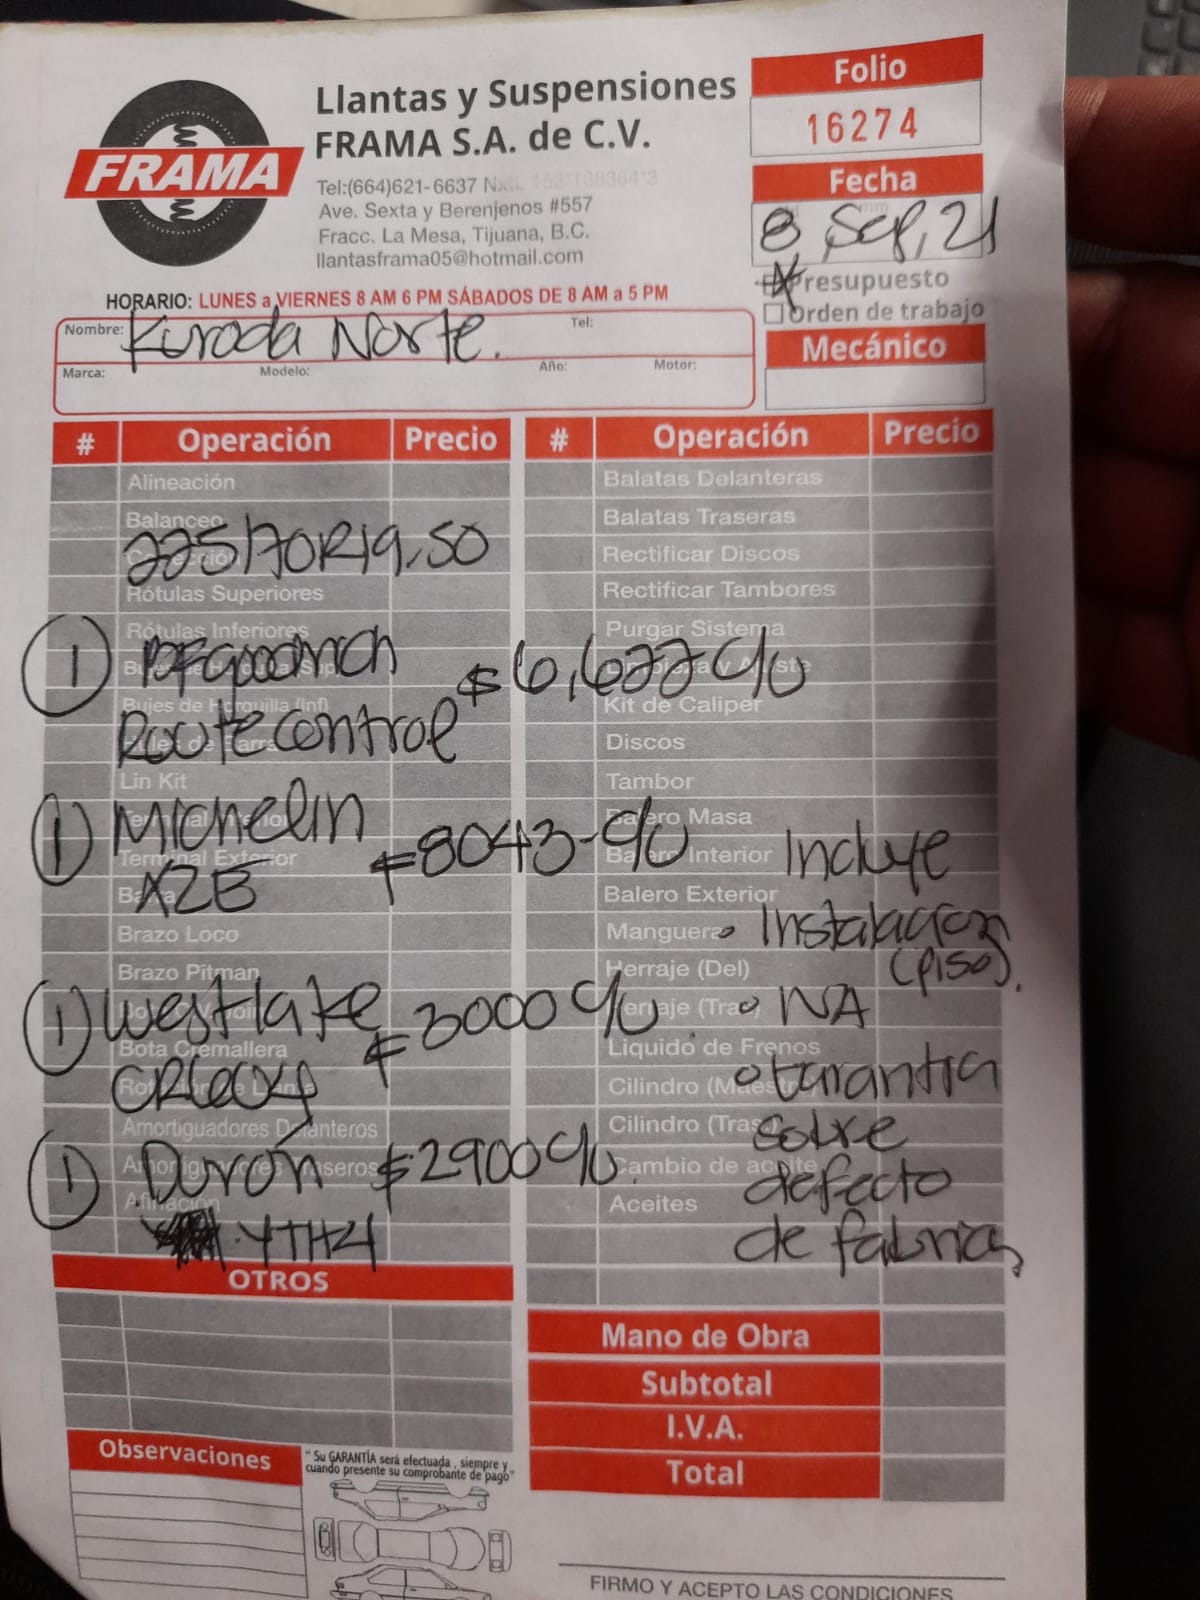 Llantas y Suspensiones
FRAMA S.A. de C.V.
FRAMA
Tel:(664)621-6637
Ave. Sexta y Berenjenos #557
Fracc. La Mesa, Tijuana, B.C.
llantasframa05@hotmail.com
HORARIO: LUNES a VIERNES 8 AM 6 PM SÁBADOS DE 8 AM a 5 PM
Folio
16274
Fecha
8, Sep, 21
Presupuesto
Orden de trabajo
Mecánico
Nombre: Kuroda Norte. Tel:
Marca: Modelo: Año: Motor:
# Operación Precio
Alineación
Balanceo
225/70R19.50
Rótulas Superiores
Rótulas Inferiores
1 BFgoodrich $6,622 c/u
Bujes de Horquilla (Inf)
Route control
Lin Kit
1 Michelin $8043- c/u
Terminal Exterior
XZE
Brazo Loco
Brazo Pitman
1 Westlake $3000 c/u
Bota Cremallera
Amortiguadores Delanteros
1 Durón $2900 c/u.
Afinación
YTH4
OTROS
# Operación Precio
Balatas Delanteras
Balatas Traseras
Rectificar Discos
Rectificar Tambores
Purgar Sistema
Kit de Caliper
Discos
Tambor
Balero Masa
Balero Interior
Incluye
Balero Exterior
Mangueras
Instalacion
(piso).
Herraje (Del)
Herraje (Tras)
NA
Liquido de Frenos
Cilindro (Maestro)
Garantia
Cilindro (Tras)
sobre
Cambio de aceite
defecto
Aceites
de fabrica
Mano de Obra
Subtotal
I.V.A.
Total
Observaciones
"Su GARANTÍA será efectuada, siempre y
cuando presente su comprobante de pago"
FIRMO Y ACEPTO LAS CONDICIONES